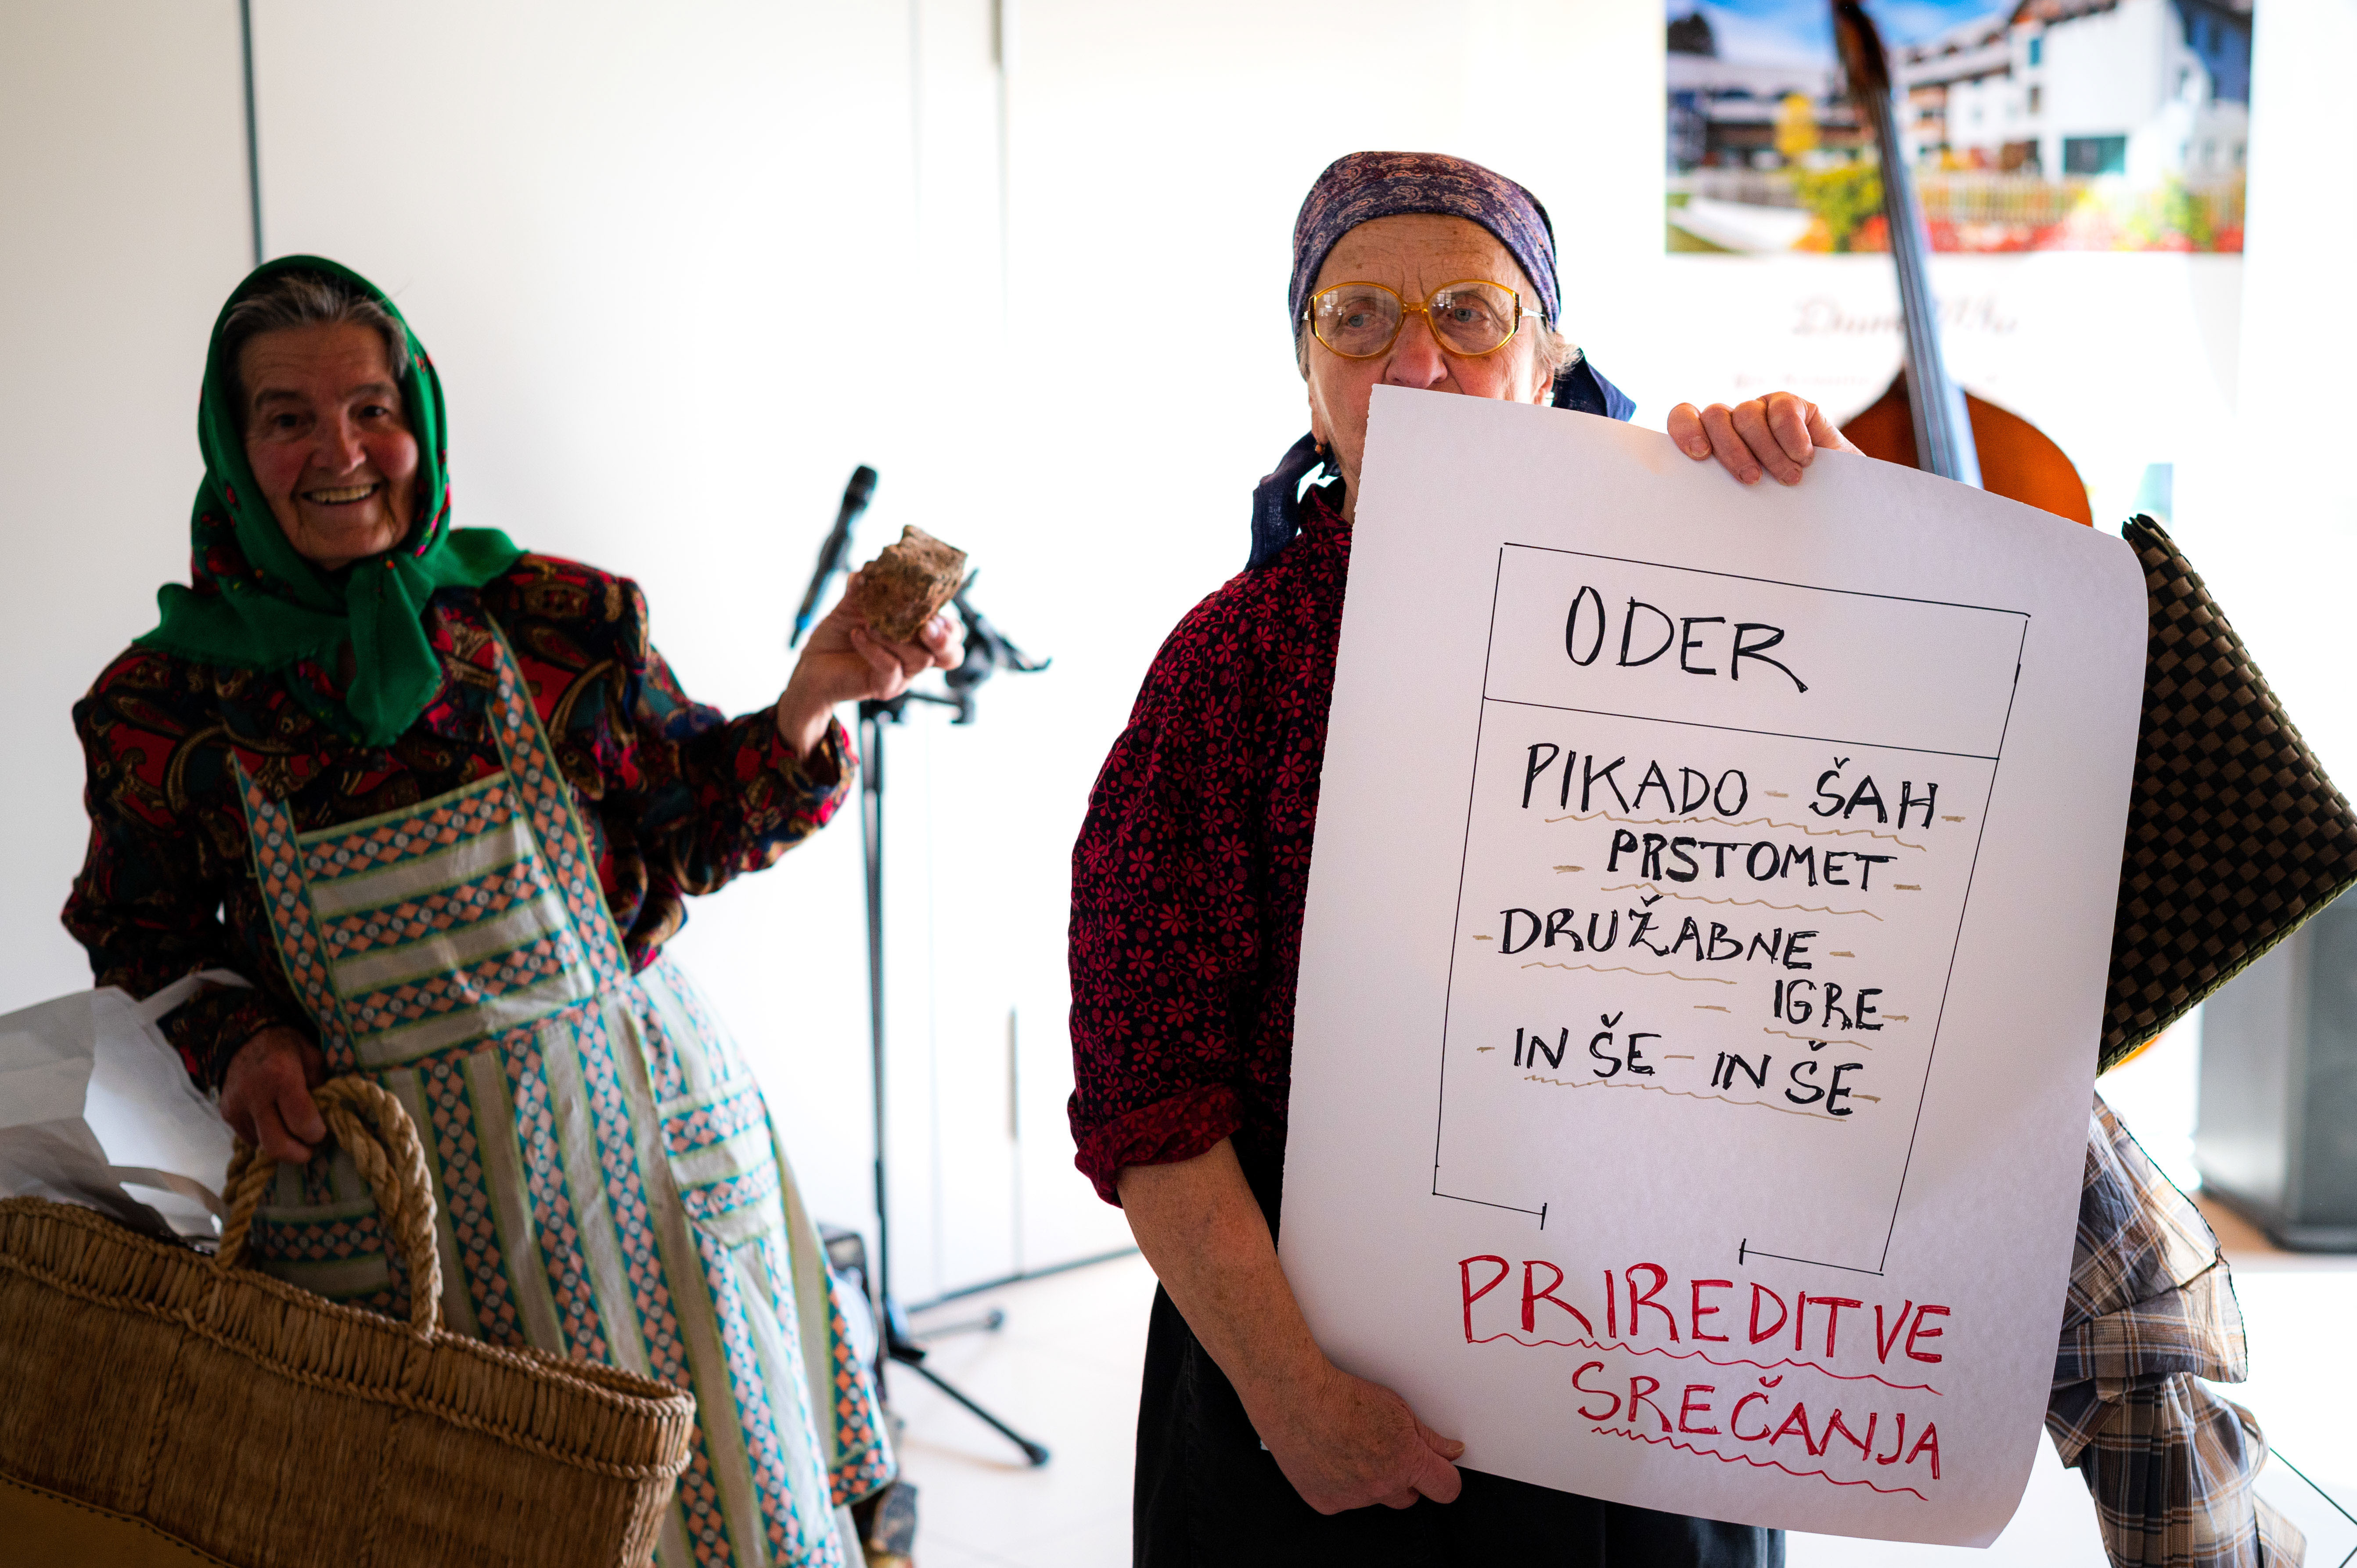 ODER
PIKADO - ŠAH -
- PRSTOMET -
- DRUŽABNE -
- IGRE -
- IN ŠE - IN ŠE -
PRIREDITVE
SREČANJA